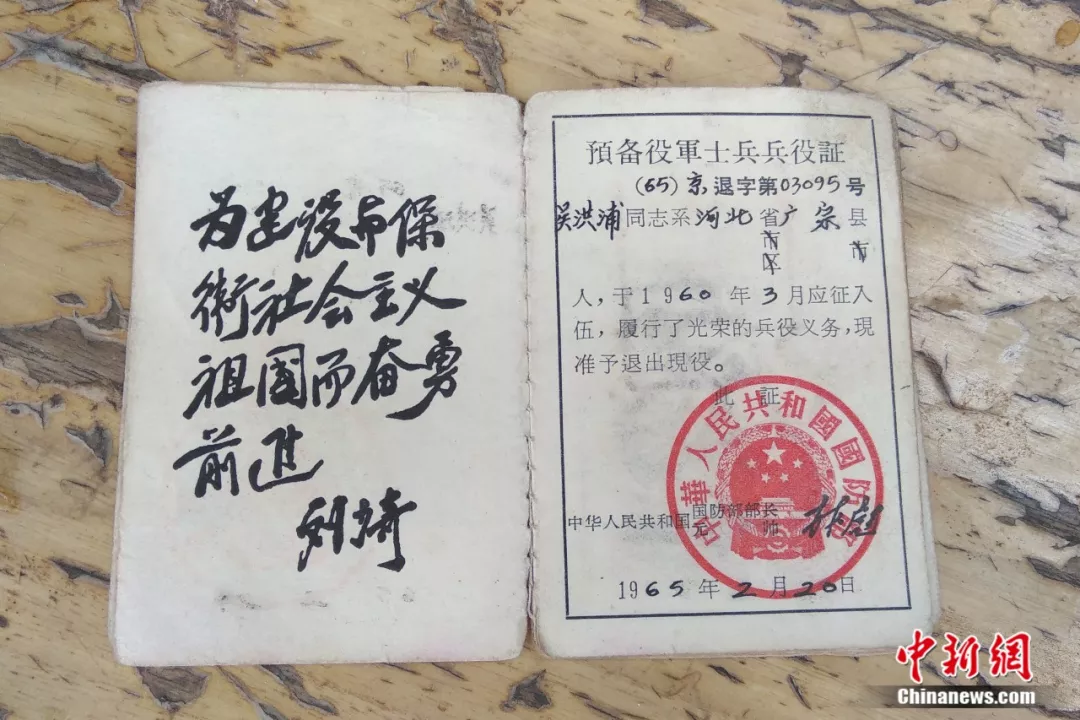 为建设与保
衛社会主义
祖國而奋勇
前進
預备役軍士兵兵役証
(65)京退字第03095号
吴洪浦同志系河北省广宗县
市 市
区
人，于1960年3月应征入
伍，履行了光荣的兵役义务，現
准予退出現役。
此証
中華人民共和國國防部
中华人民共和国国防部长
元帅 林彪
1965年2月20日
中新网
Chinanews.com